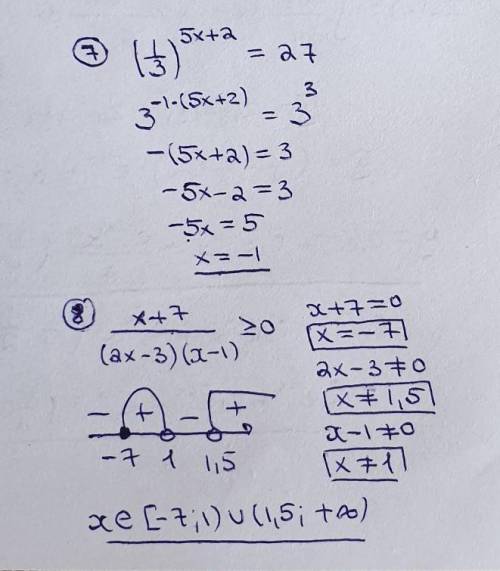 7 (1/3)^(5x+2) = 27
3^(-1·(5x+2)) = 3^3
-(5x+2) = 3
-5x-2 = 3
-5x = 5
x = -1
8 (x+7)/((2x-3)(x-1)) ≥ 0
x+7=0
x=-7
2x-3≠0
x≠1,5
x-1≠0
x≠1
- + - +
-7 1 1,5
x∈[-7;1)∪(1,5;+∞)